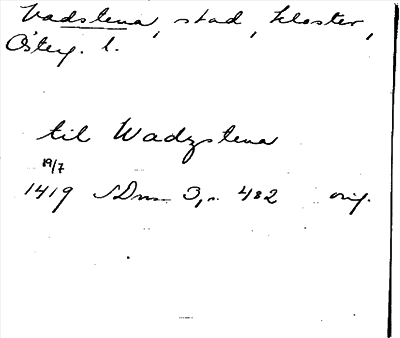 Vadstena, stad, kloster,
Österg. l.
til Wadzstena
19/7
1419 SDns 3, s. 482 orig.